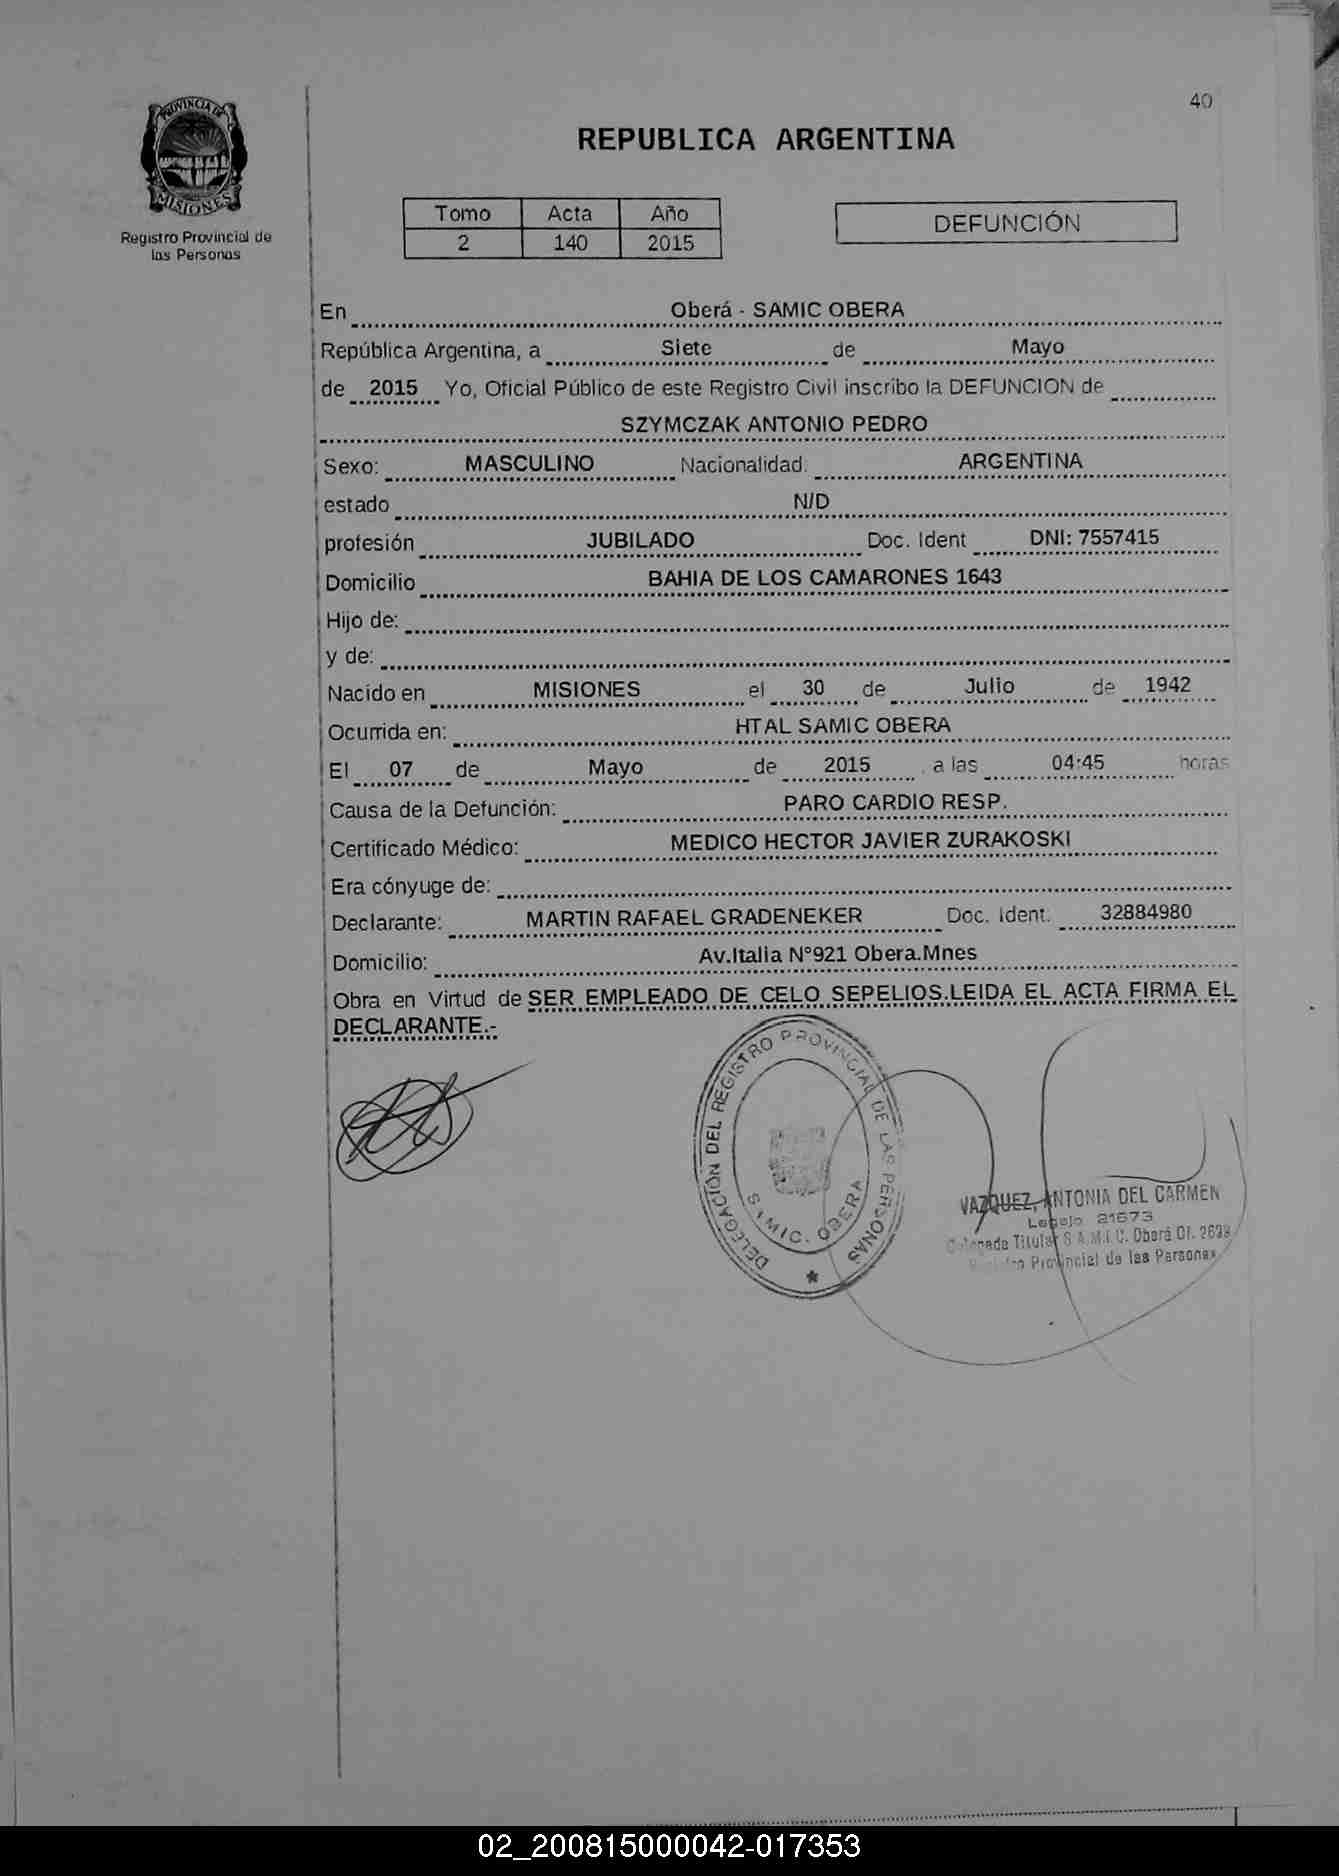 40
PROVINCIA DE
MISIONES
Registro Provincial de
las Personas
REPUBLICA ARGENTINA
Tomo Acta Año
2 140 2015
DEFUNCIÓN
En Oberá - SAMIC OBERA
República Argentina, a Siete de Mayo
de 2015 Yo, Oficial Público de este Registro Civil inscribo la DEFUNCION de
SZYMCZAK ANTONIO PEDRO
Sexo: MASCULINO Nacionalidad: ARGENTINA
estado N/D
profesión JUBILADO Doc. Ident DNI: 7557415
Domicilio BAHIA DE LOS CAMARONES 1643
Hijo de:
y de:
Nacido en MISIONES el 30 de Julio de 1942
Ocurrida en: HTAL SAMIC OBERA
El 07 de Mayo de 2015 , a las 04:45 horas
Causa de la Defunción: PARO CARDIO RESP.
Certificado Médico: MEDICO HECTOR JAVIER ZURAKOSKI
Era cónyuge de:
Declarante: MARTIN RAFAEL GRADENEKER Doc. Ident: 32884980
Domicilio: Av.Italia N°921 Obera.Mnes
Obra en Virtud de SER EMPLEADO DE CELO SEPELIOS.LEIDA EL ACTA FIRMA EL
DECLARANTE.-
DELEGACIÓN DEL REGISTRO PROVINCIAL DE LAS PERSONAS
SAMIC. OBERA
VAZQUEZ, ANTONIA DEL CARMEN
Legajo 21673
Titular S.A.M.I.C. Oberá Of.
Provincial de las Personas
02_200815000042-017353